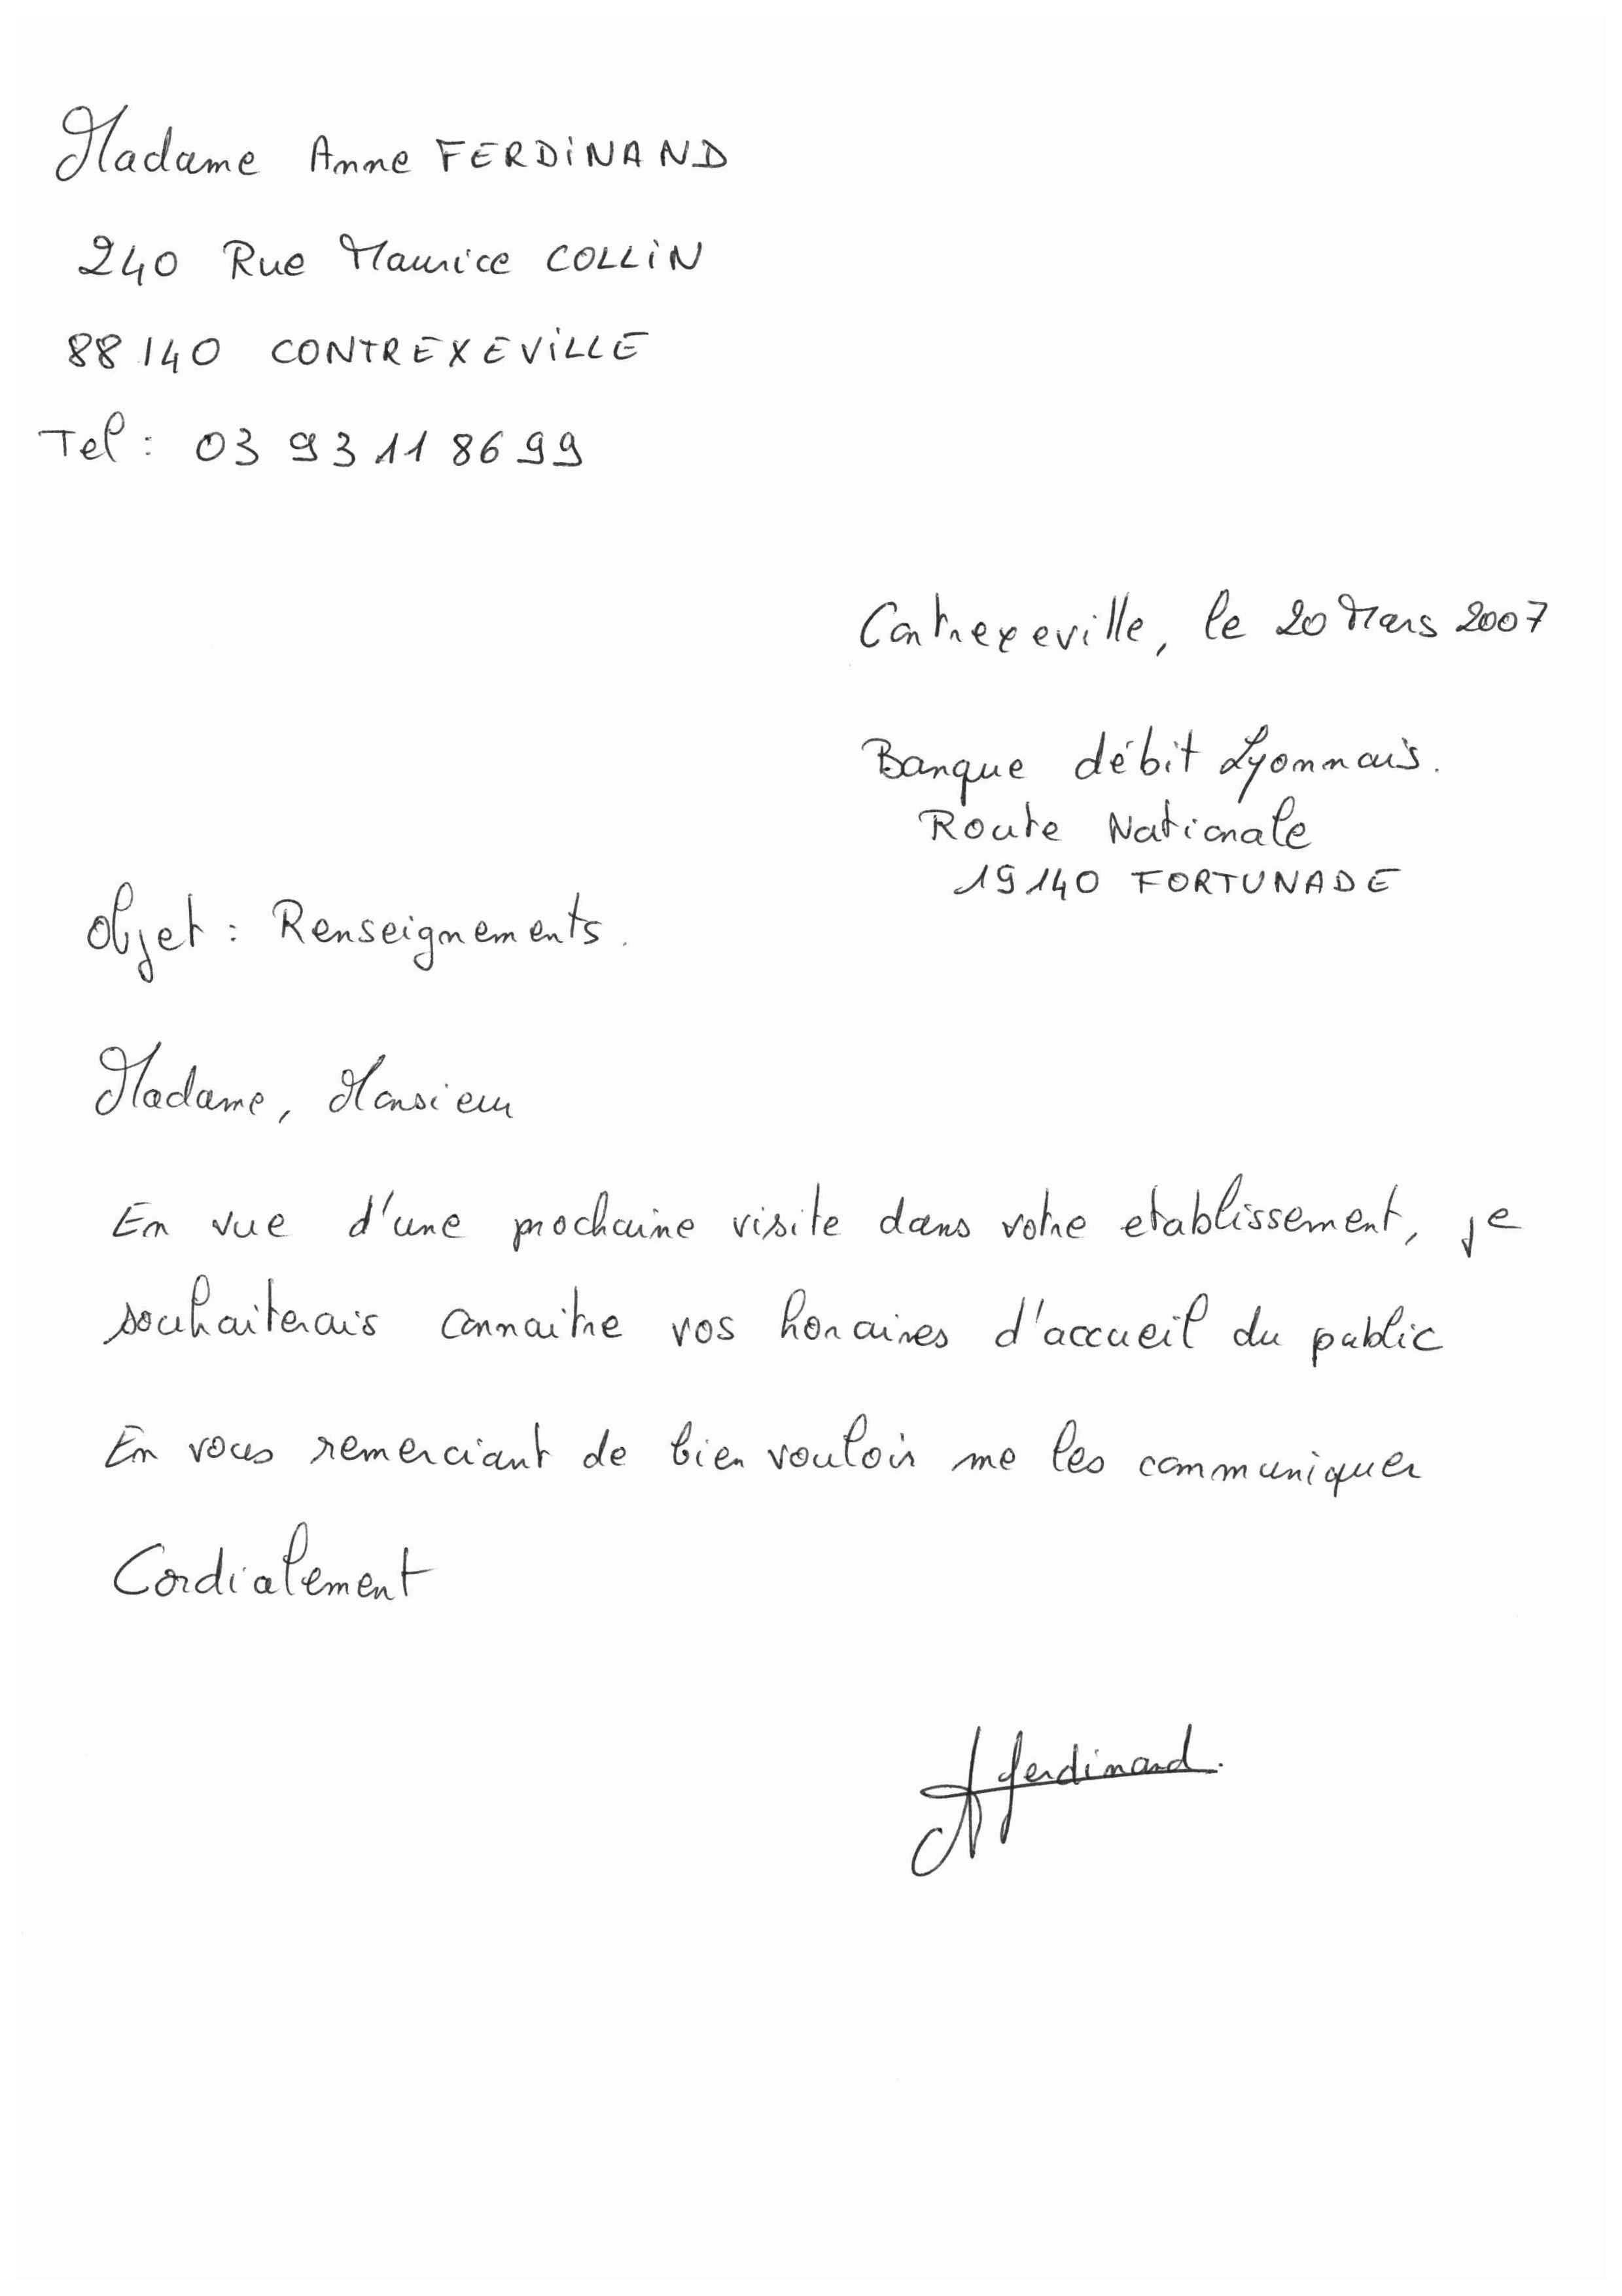 Madame Anne FERDINAND
240 Rue Maurice COLLIN
88140 CONTREXEVILLE
Tel : 03 93 11 86 99
Contrexeville, le 20 Mars 2007
Banque débit Lyonnais.
Route Nationale
19140 FORTUNADE
Objet : Renseignements.
Madame, Monsieur
En vue d'une prochaine visite dans votre etablissement, je
souhaiterais connaitre vos horaires d'accueil du public
En vous remerciant de bien vouloir me les communiquer
Cordialement
A ferdinand.